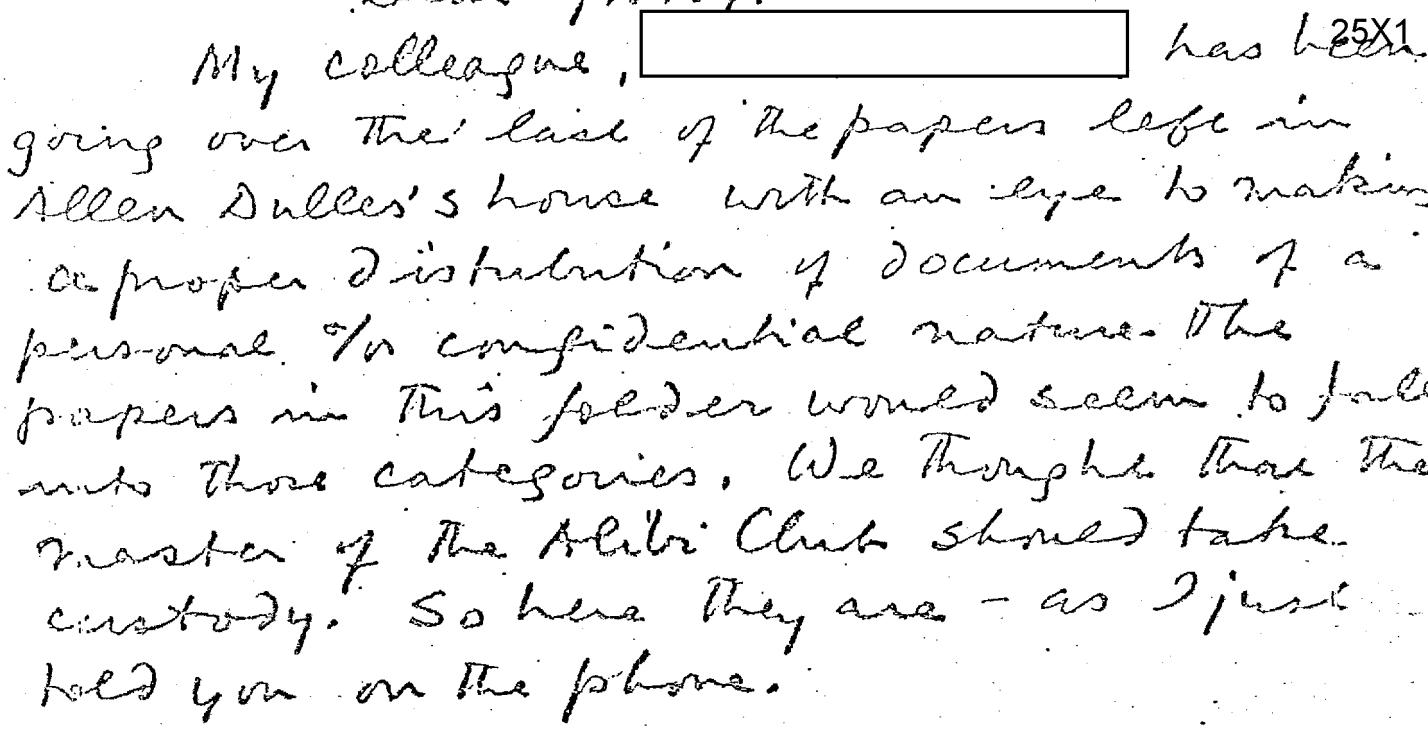 Dear
My colleague, 25X1 has been
going over the last of the papers left in
Allen Dulles's house with an eye to making
a proper distribution of documents of a
personal &/or confidential nature. The
papers in this folder would seem to fall
into those categories. We thought that the
master of the Alibi Club should take
custody. So here they are - as I just
told you on the phone.